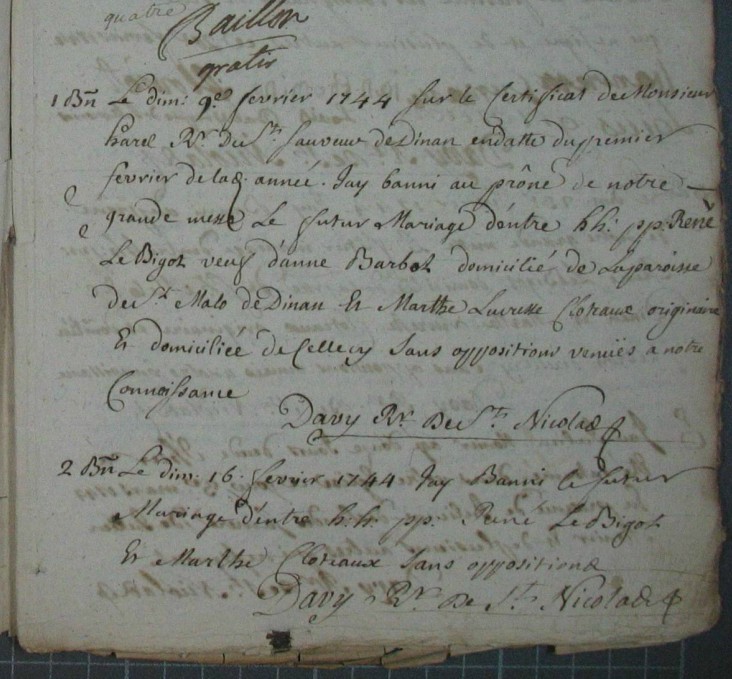 quatre
Baillon
gratis
1 Bn Le dim: 9e fevrier 1744 sur le Certificat de Monsieur
harel Rr. De St. Sauveur de Dinan endatte du premier
fevrier de lad. année. Jay banni au prône de notre
grande messe Le futur Mariage d'entre hh: pp: René
Le Bigot veuf d'anne Barbot domicilié de Laparoisse
de St. Malo de Dinan Et Marthe Lucresse Cloteaux originaire
Et domiciliée de Cellecy Sans oppositions venuës a notre
Connoissance
Davy Rr. De St. Nicolas
2 Bn Le dim: 16: fevrier 1744 Jay Banni le futur
Mariage d'entre h.h. pp. René Le Bigot
Et Marthe Cloteaux Sans oppositions
Davy Rr. De St. Nicolas